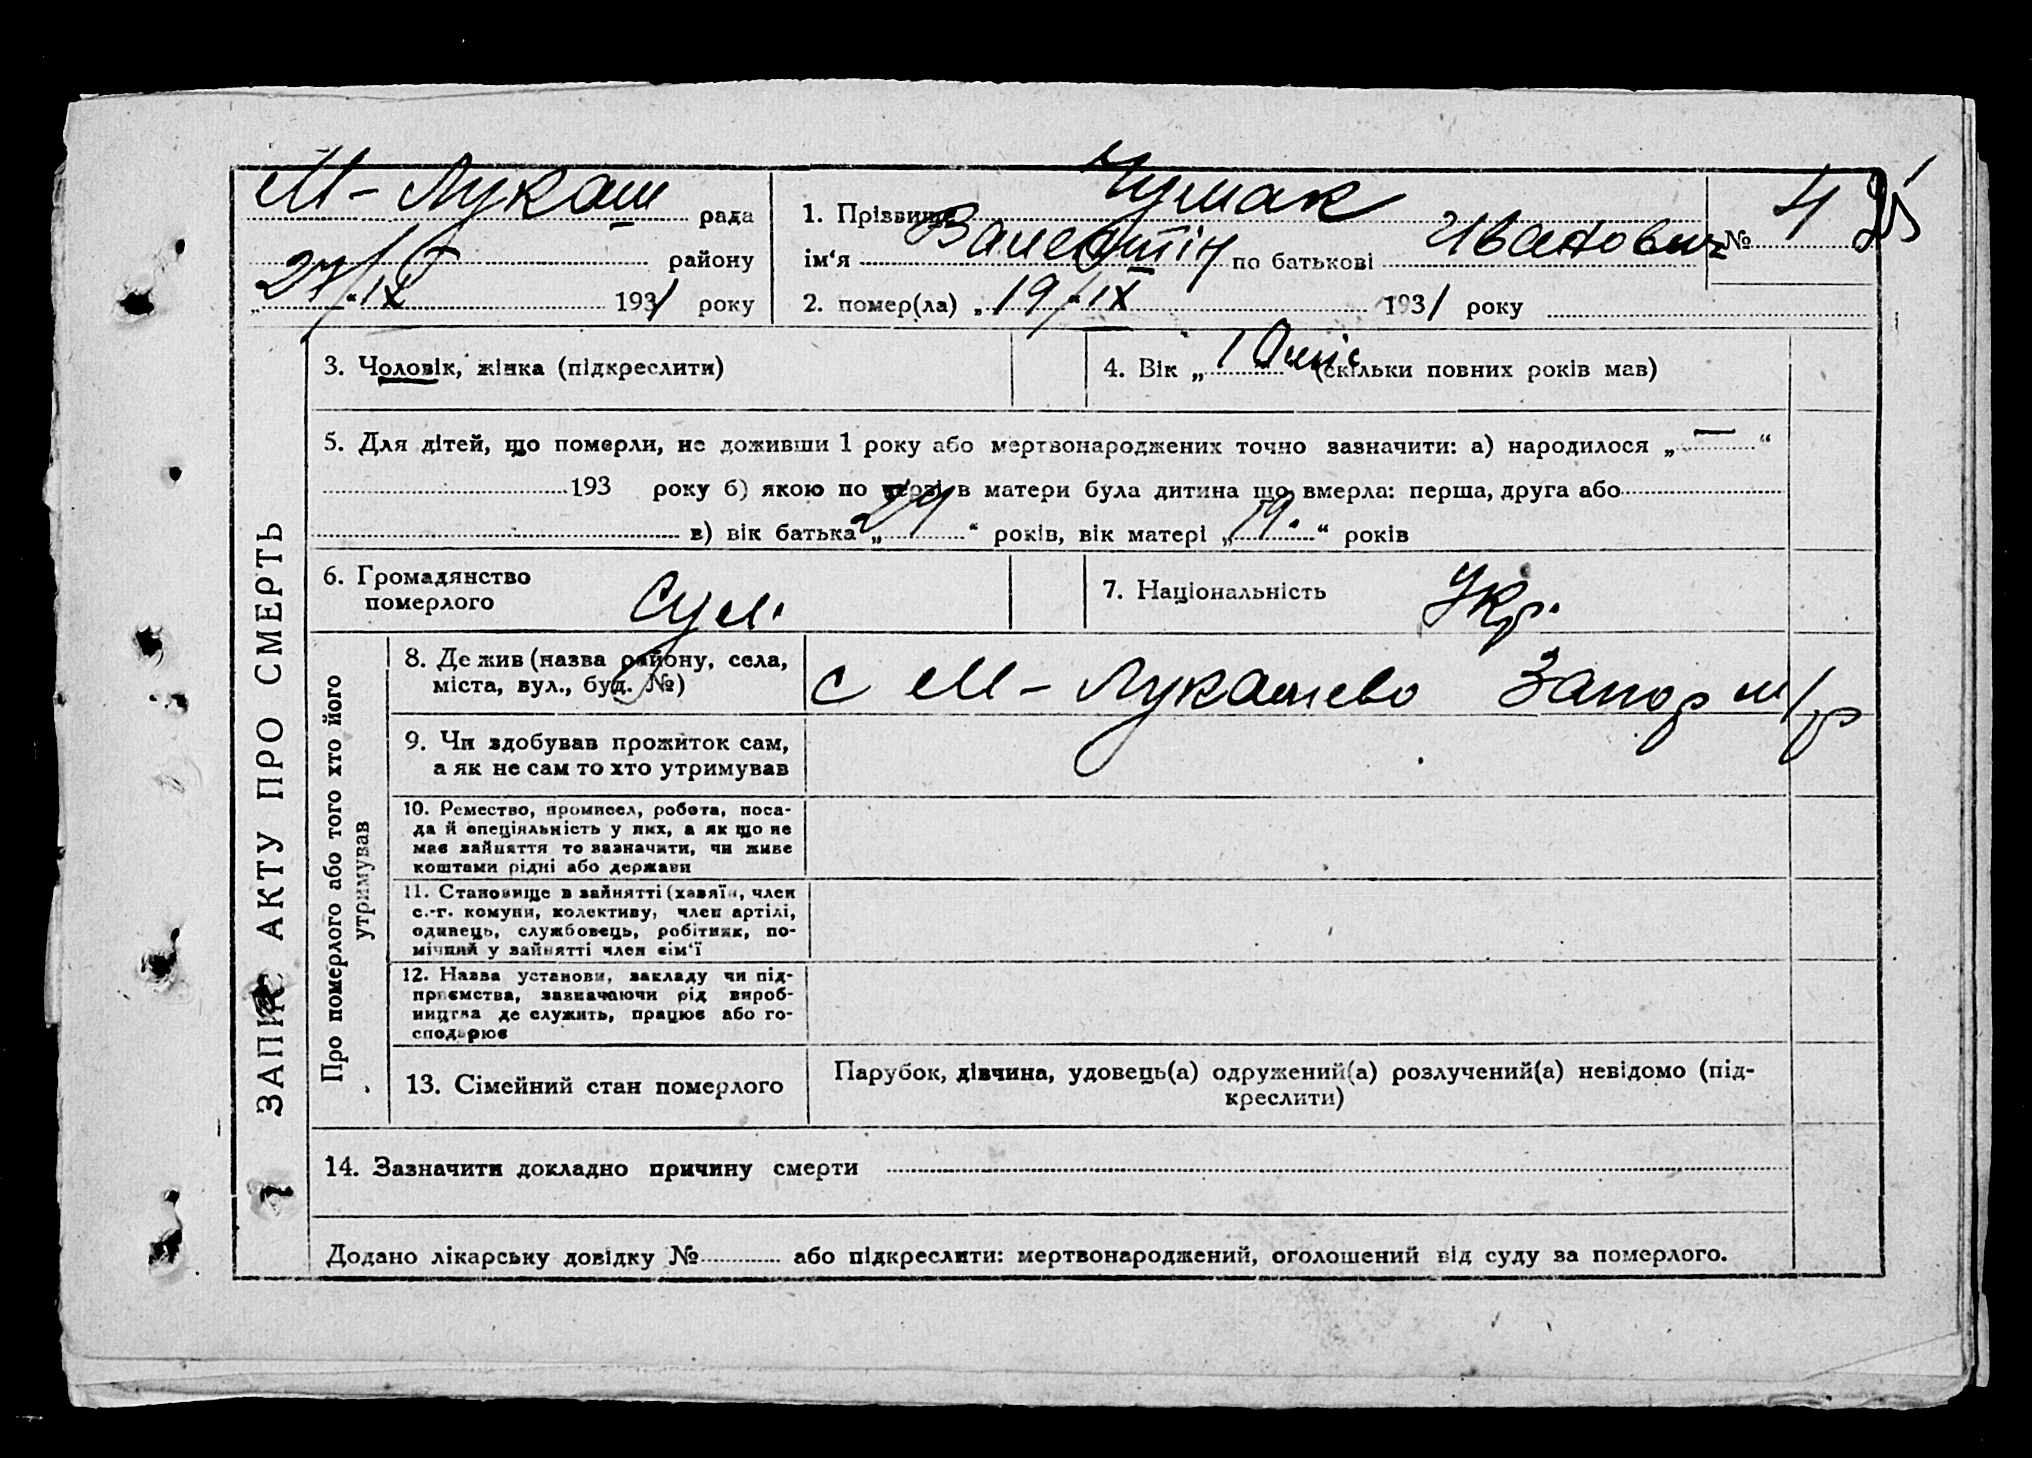 М-Лукаш рада
району
„27“/IX 1931 року
1. Прізвище Чумак
ім'я Валентін по батькові Иванович № 4
2. помер(ла) „19“ IX 1931 року
ЗАПИС АКТУ ПРО СМЕРТЬ
3. Чоловік, жінка (підкреслити)
4. Вік „1 (скільки повних років мав)
5. Для дітей, що померли, не доживши 1 року або мертвонароджених точно зазначити: а) народилося „—“
193 року б) якою по черзі в матери була дитина що вмерла: перша, друга або
в) вік батька „ “ років, вік матері „19.“ років
6. Громадянство
померлого
7. Національність Укр.
Про померлого або того хто його
утримував
8. Де жив (назва району, села,
міста, вул., буд. №)
с М-Лукашево Запор м/р
9. Чи здобував прожиток сам,
а як не сам то хто утримував
10. Ремество, промисел, робота, поса-
да й спеціяльність у них, а як що не
має зайняття то зазначити, чи живе
коштами рідні або держави
11. Становище в зайнятті (хазяїн, член
с.-г. комуни, колективу, член артілі,
одинець, службовець, робітник, по-
мічний у зайнятті член сім'ї
12. Назва установи, закладу чи під-
приємства, зазначаючи рід вироб-
ництва де служить, працює або го-
сподарює
13. Сімейний стан померлого
Парубок, дівчина, удовець(а) одружений(а) розлучений(а) невідомо (під-
креслити)
14. Зазначити докладно причину смерти
Додано лікарську довідку № або підкреслити: мертвонароджений, оголошений від суду за померлого.